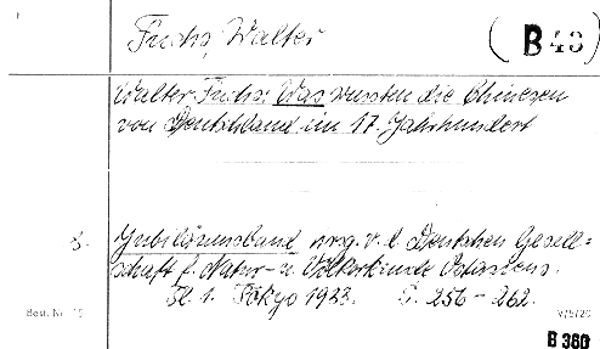 Fuchs, Walter
(B 43)
Walter Fuchs: Was wussten die Chinesen
von Deutschland im 17. Jahrhundert
s. Jubiläumsband hrsg. v. d. Deutschen Gesell-
schaft f. Natur- u. Völkerkunde Ostasiens.
Tl. 1. Tokyo 1933. S. 256-262.
Best. Nr. 15
V/5/20
B 380